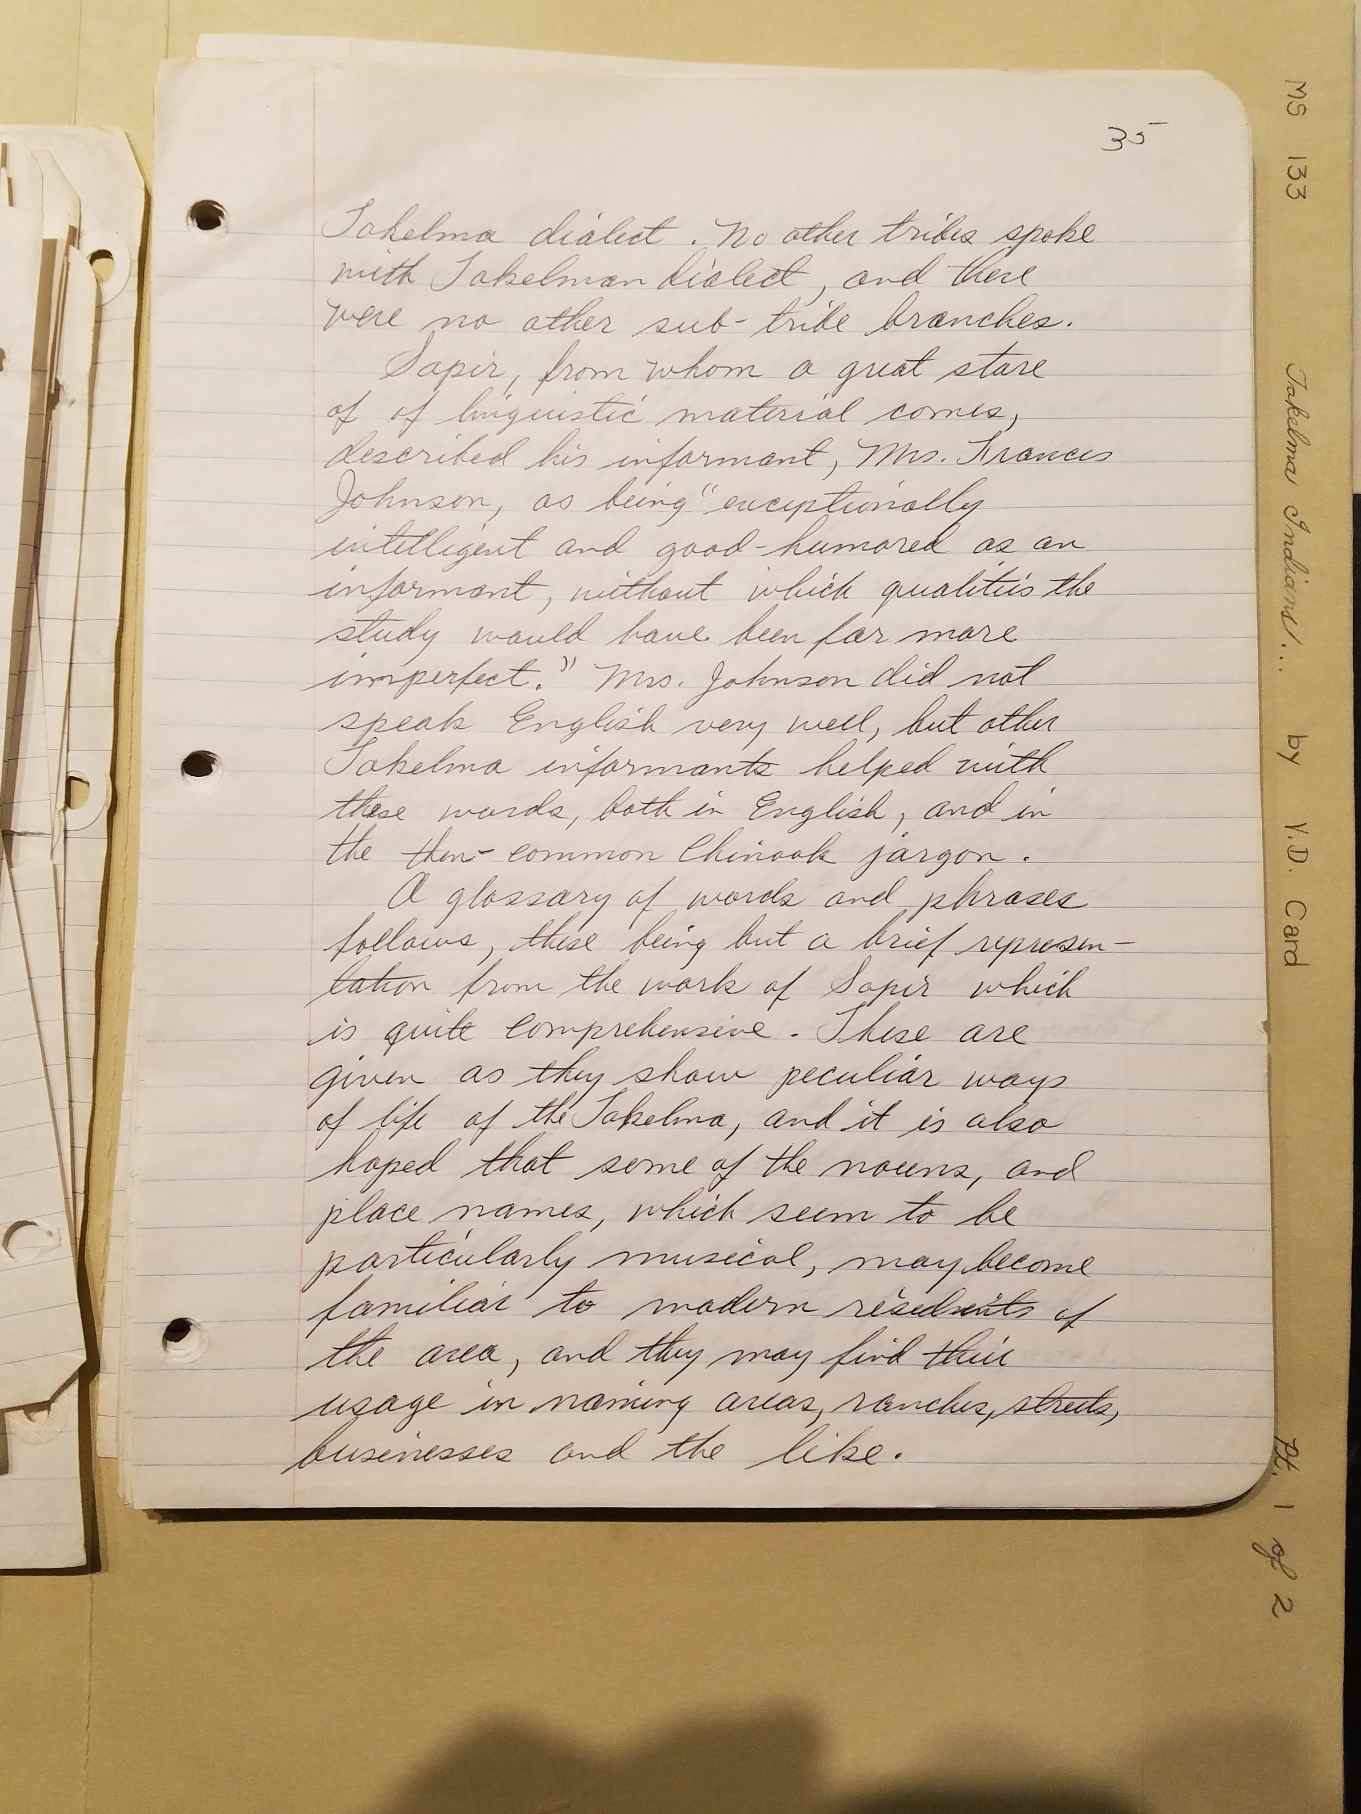 35
Takelma dialect. No other tribes spoke
with Takelman dialect, and there
were no other sub-tribe branches.
Sapir, from whom a great store
of of linguistic material comes,
described his informant, Mrs. Frances
Johnson, as being "exceptionally
intelligent and good-humored as an
informant, without which qualities the
study would have been far more
imperfect." Mrs. Johnson did not
speak English very well, but other
Takelma informants helped with
these words, both in English, and in
the then-common Chinook jargon.
A glossary of words and phrases
follows, these being but a brief represen-
tation from the work of Sapir which
is quite comprehensive. These are
given as they show peculiar ways
of life of the Takelma, and it is also
hoped that some of the nouns, and
place names, which seem to be
particularly musical, may become
familiar to modern residents of
the area, and they may find their
usage in naming areas, ranches, streets,
businesses and the like.
MS 133 Takelma Indians... by Y.D. Card Pt. 1 of 2